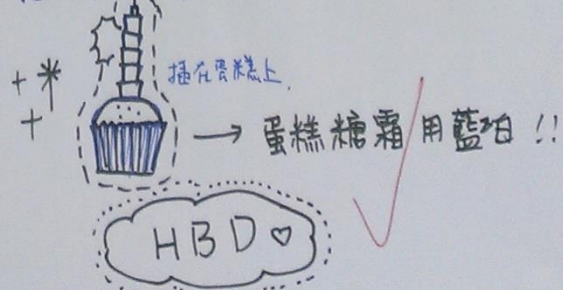 插在蛋糕上.
蛋糕糖霜用藍白!!
HBD♡